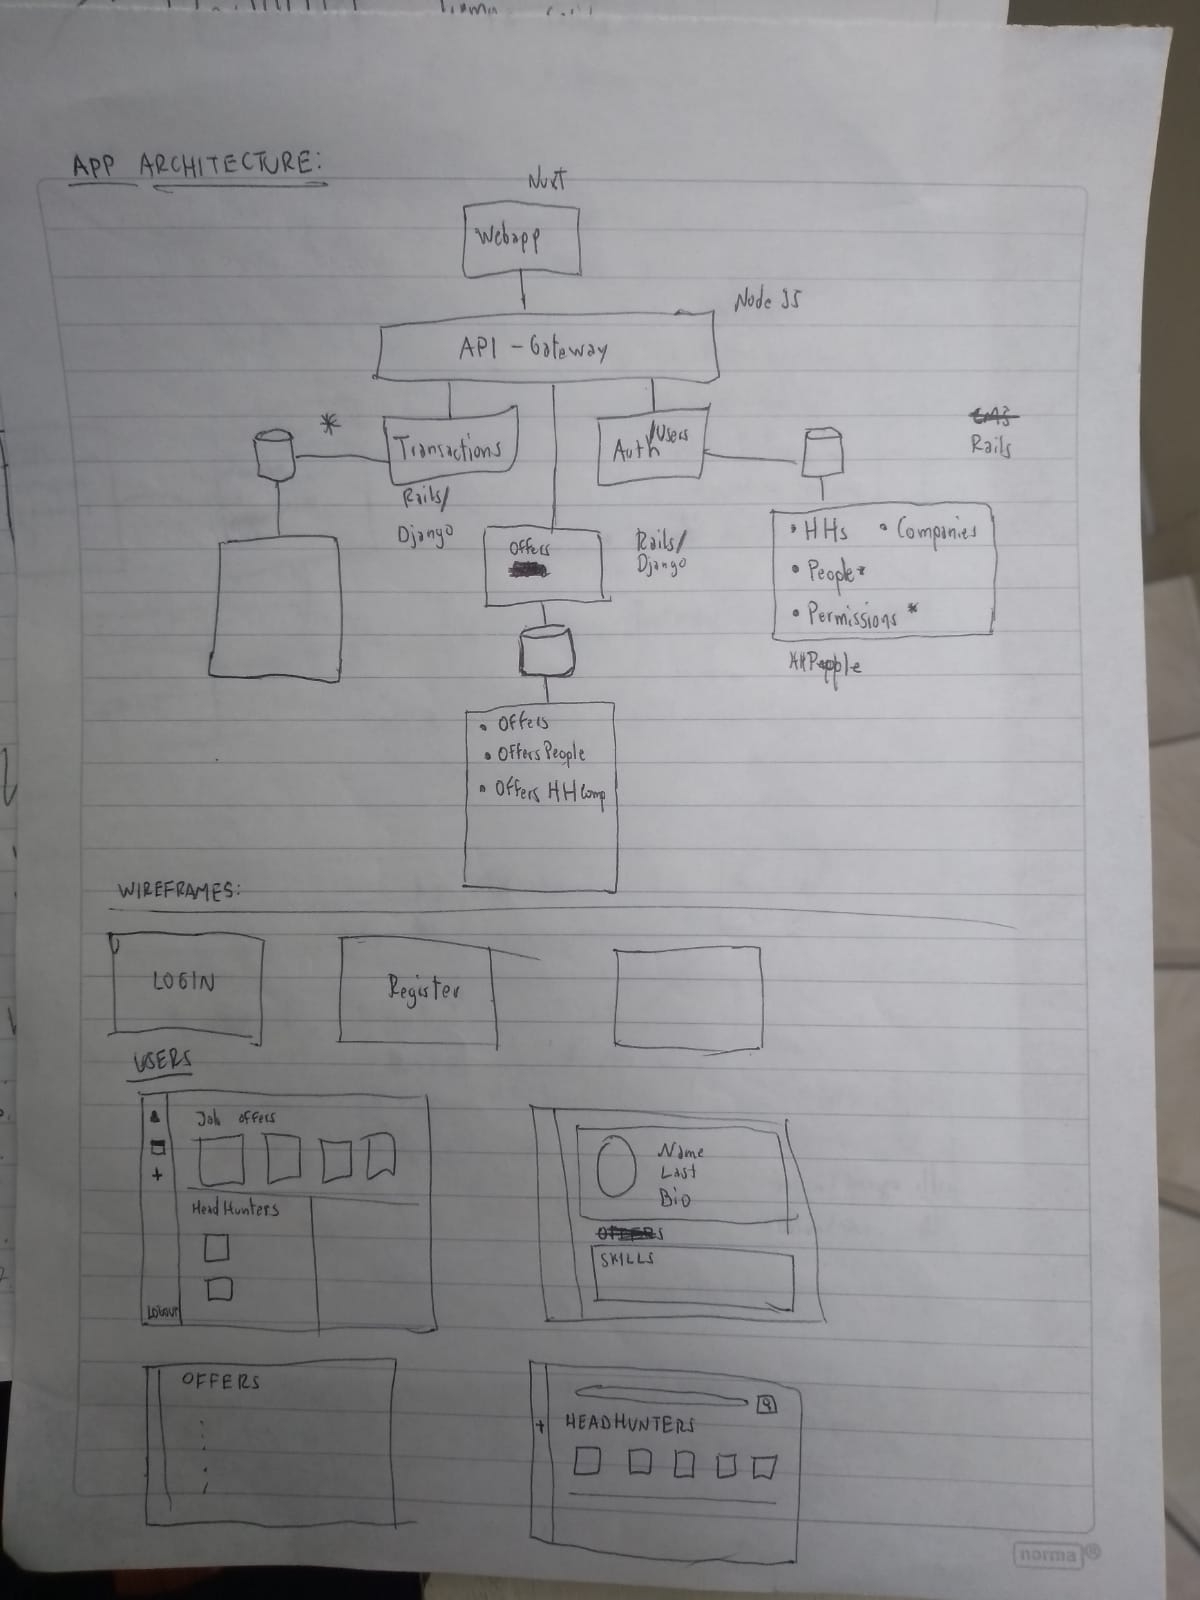 APP ARCHITECTURE:
Nuxt
Webapp
Node JS
API - Gateway
*
Transactions
Auth /Users
CMS
Rails
Rails/
Django
Offers
Rails/
Django
• HHs • Companies
• People*
• Permissions *
HHPeople
• Offers
• Offers People
• Offers HHComp
WIREFRAMES:
LOGIN
Register
USERS
Job offers
+
Head Hunters
LOGOUT
Name
Last
Bio
OFFERS
SKILLS
OFFERS
+
HEADHUNTERS
norma®